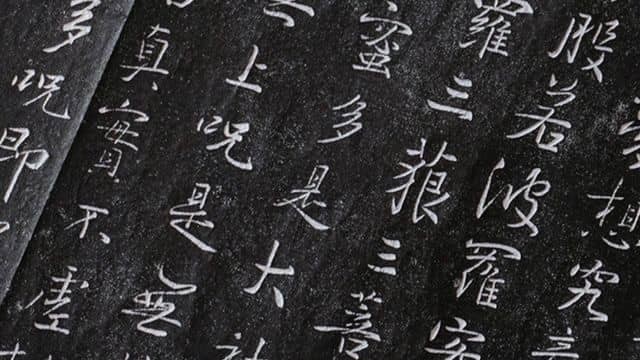 想究
般若波羅密
羅三藐三菩
蜜多是大
上呪是無
真實不虛
多呪即